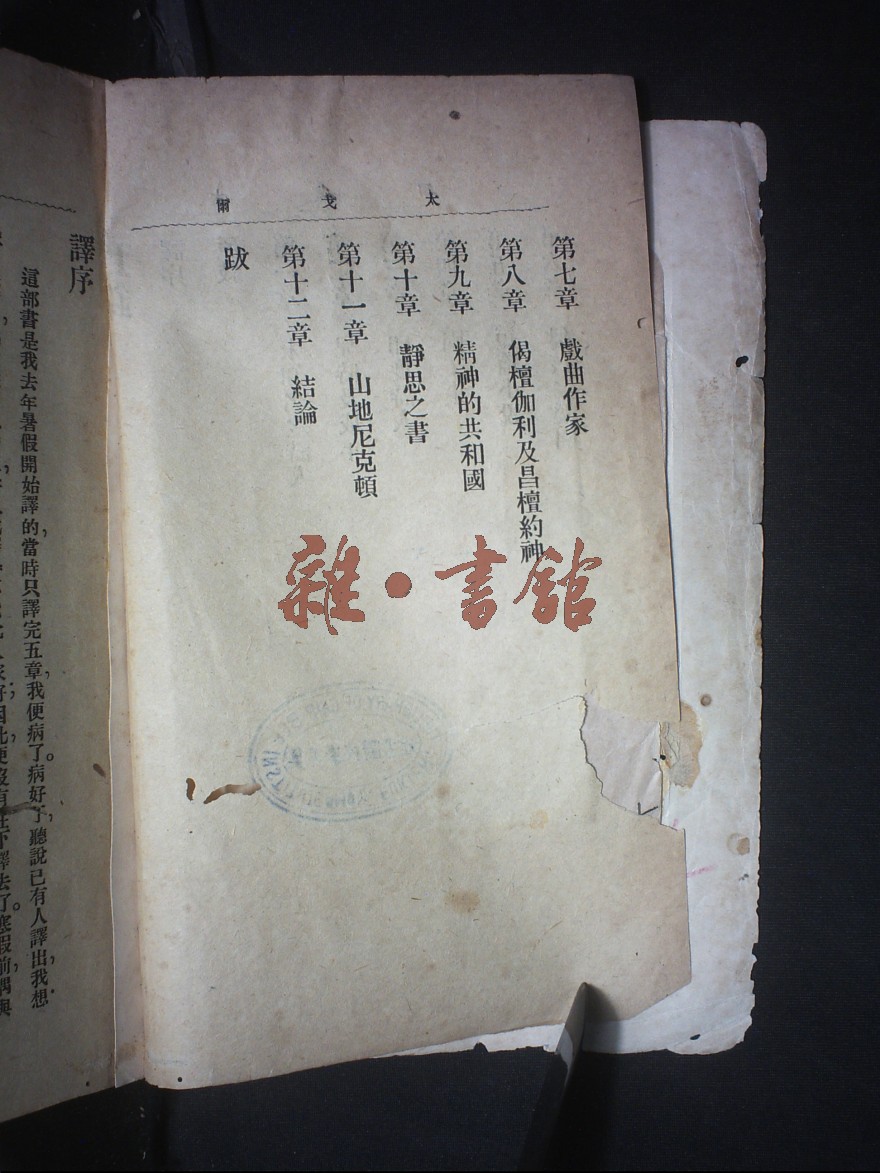 太戈爾
第七章 戲曲作家
第八章 偈檀伽利及昌檀約神
第九章 精神的共和國
第十章 靜思之書
第十一章 山地尼克頓
第十二章 結論
跋
雜·書館
譯序
這部書是我去年暑假開始譯的,當時只譯完五章,我便病了。病好了,聽說已有人譯出,我想